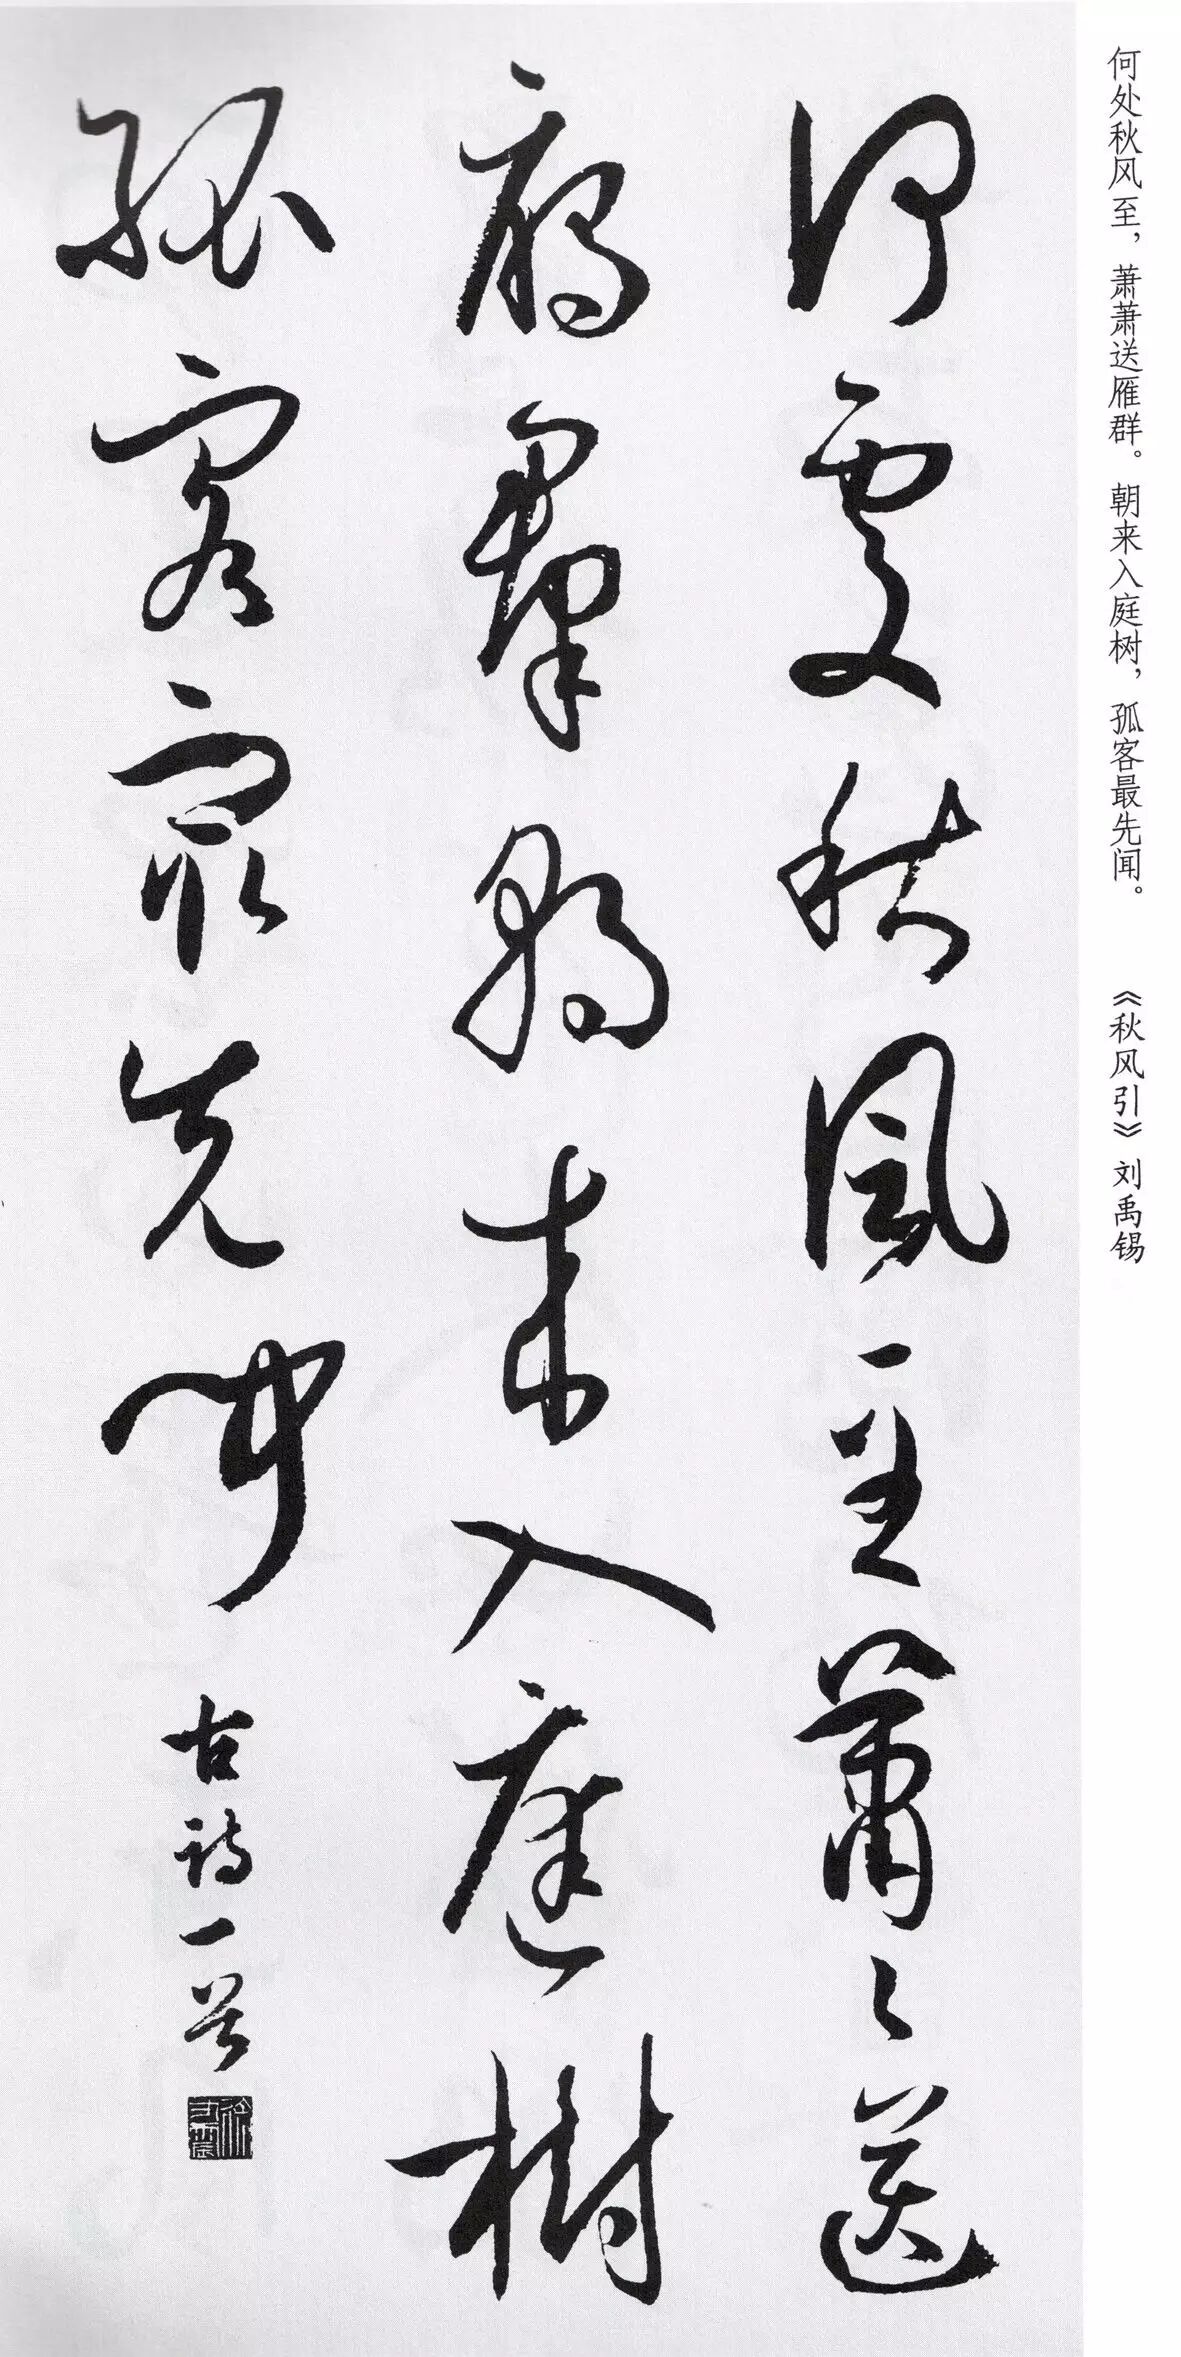 何处秋风至，萧萧送雁群。朝来入庭树，孤客最先闻。　《秋风引》刘禹锡
何處秋風至蕭々送
雁羣朝來入庭樹
孤客最先聞　古詩一首